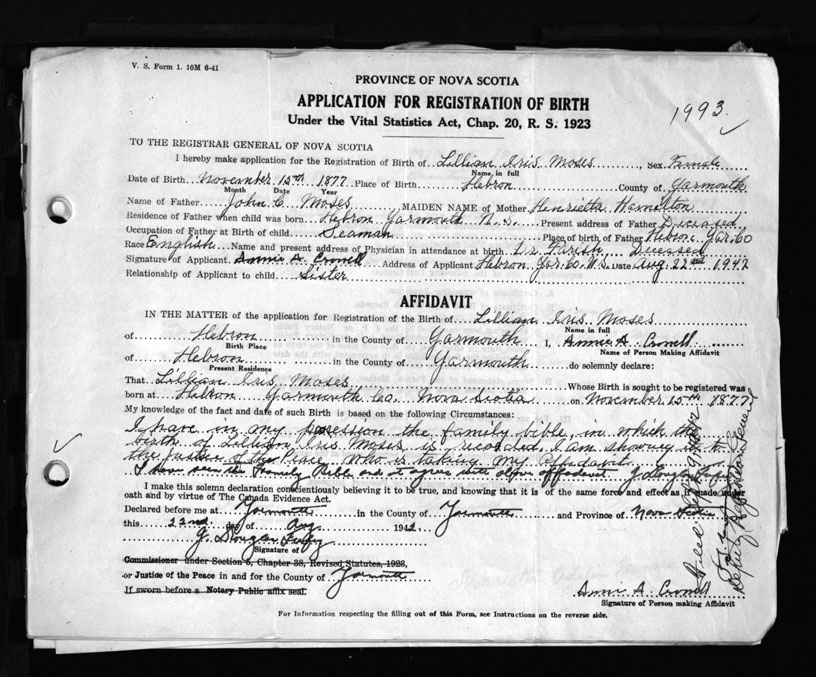 V. S. Form 1. 10M 6-41
PROVINCE OF NOVA SCOTIA
APPLICATION FOR REGISTRATION OF BIRTH
1993.
Under the Vital Statistics Act, Chap. 20, R. S. 1923
TO THE REGISTRAR GENERAL OF NOVA SCOTIA
I hereby make application for the Registration of Birth of Lillian Iris Moses, Sex Female
Name in full
Date of Birth November 15th 1877 Place of Birth Hebron County of Yarmouth
Month Date Year
Name of Father John C. Moses, MAIDEN NAME of Mother Henrietta Hamilton
Residence of Father when child was born Hebron Yarmouth N.S. Present address of Father Deceased
Occupation of Father at Birth of child Seaman Place of Birth of Father Hebron Yar. Co
Race English Name and present address of Physician in attendance at birth Dr Farish Deceased
Signature of Applicant Annie A. Crowell Address of Applicant Hebron Yar. Co. N.S. Date Aug. 22nd 1942
Relationship of Applicant to child Sister
AFFIDAVIT
IN THE MATTER of the application for Registration of the Birth of Lillian Iris Moses
Name in full
of Hebron in the County of Yarmouth I, Annie A. Crowell
Birth Place Name of Person Making Affidavit
of Hebron in the County of Yarmouth do solemnly declare:
Present Residence
That Lillian Iris Moses Whose Birth is sought to be registered was
born at Hebron Yarmouth Co. Nova Scotia on November 15th 1877
My knowledge of the fact and date of such Birth is based on the following Circumstances:
I have in my possession the family bible, in which the
birth of Lillian Iris Moses is recorded. I am showing it to
the Justice of the Peace who is taking my affidavit.
I have seen the Family Bible and it agrees with above affidavit
I make this solemn declaration conscientiously believing it to be true, and knowing that it is of the same force and effect as if made under
oath and by virtue of The Canada Evidence Act.
Declared before me at Yarmouth in the County of Yarmouth and Province of Nova Scotia
this 22nd day of Aug 1942
Signature of
Commissioner under Section 6, Chapter 38, Revised Statutes, 1923,
or Justice of the Peace in and for the County of Yarmouth
If sworn before a Notary Public affix seal.
Annie A. Crowell
Signature of Person making Affidavit
For Information respecting the filling out of this Form, see Instructions on the reverse side.
Deputy Registrar General